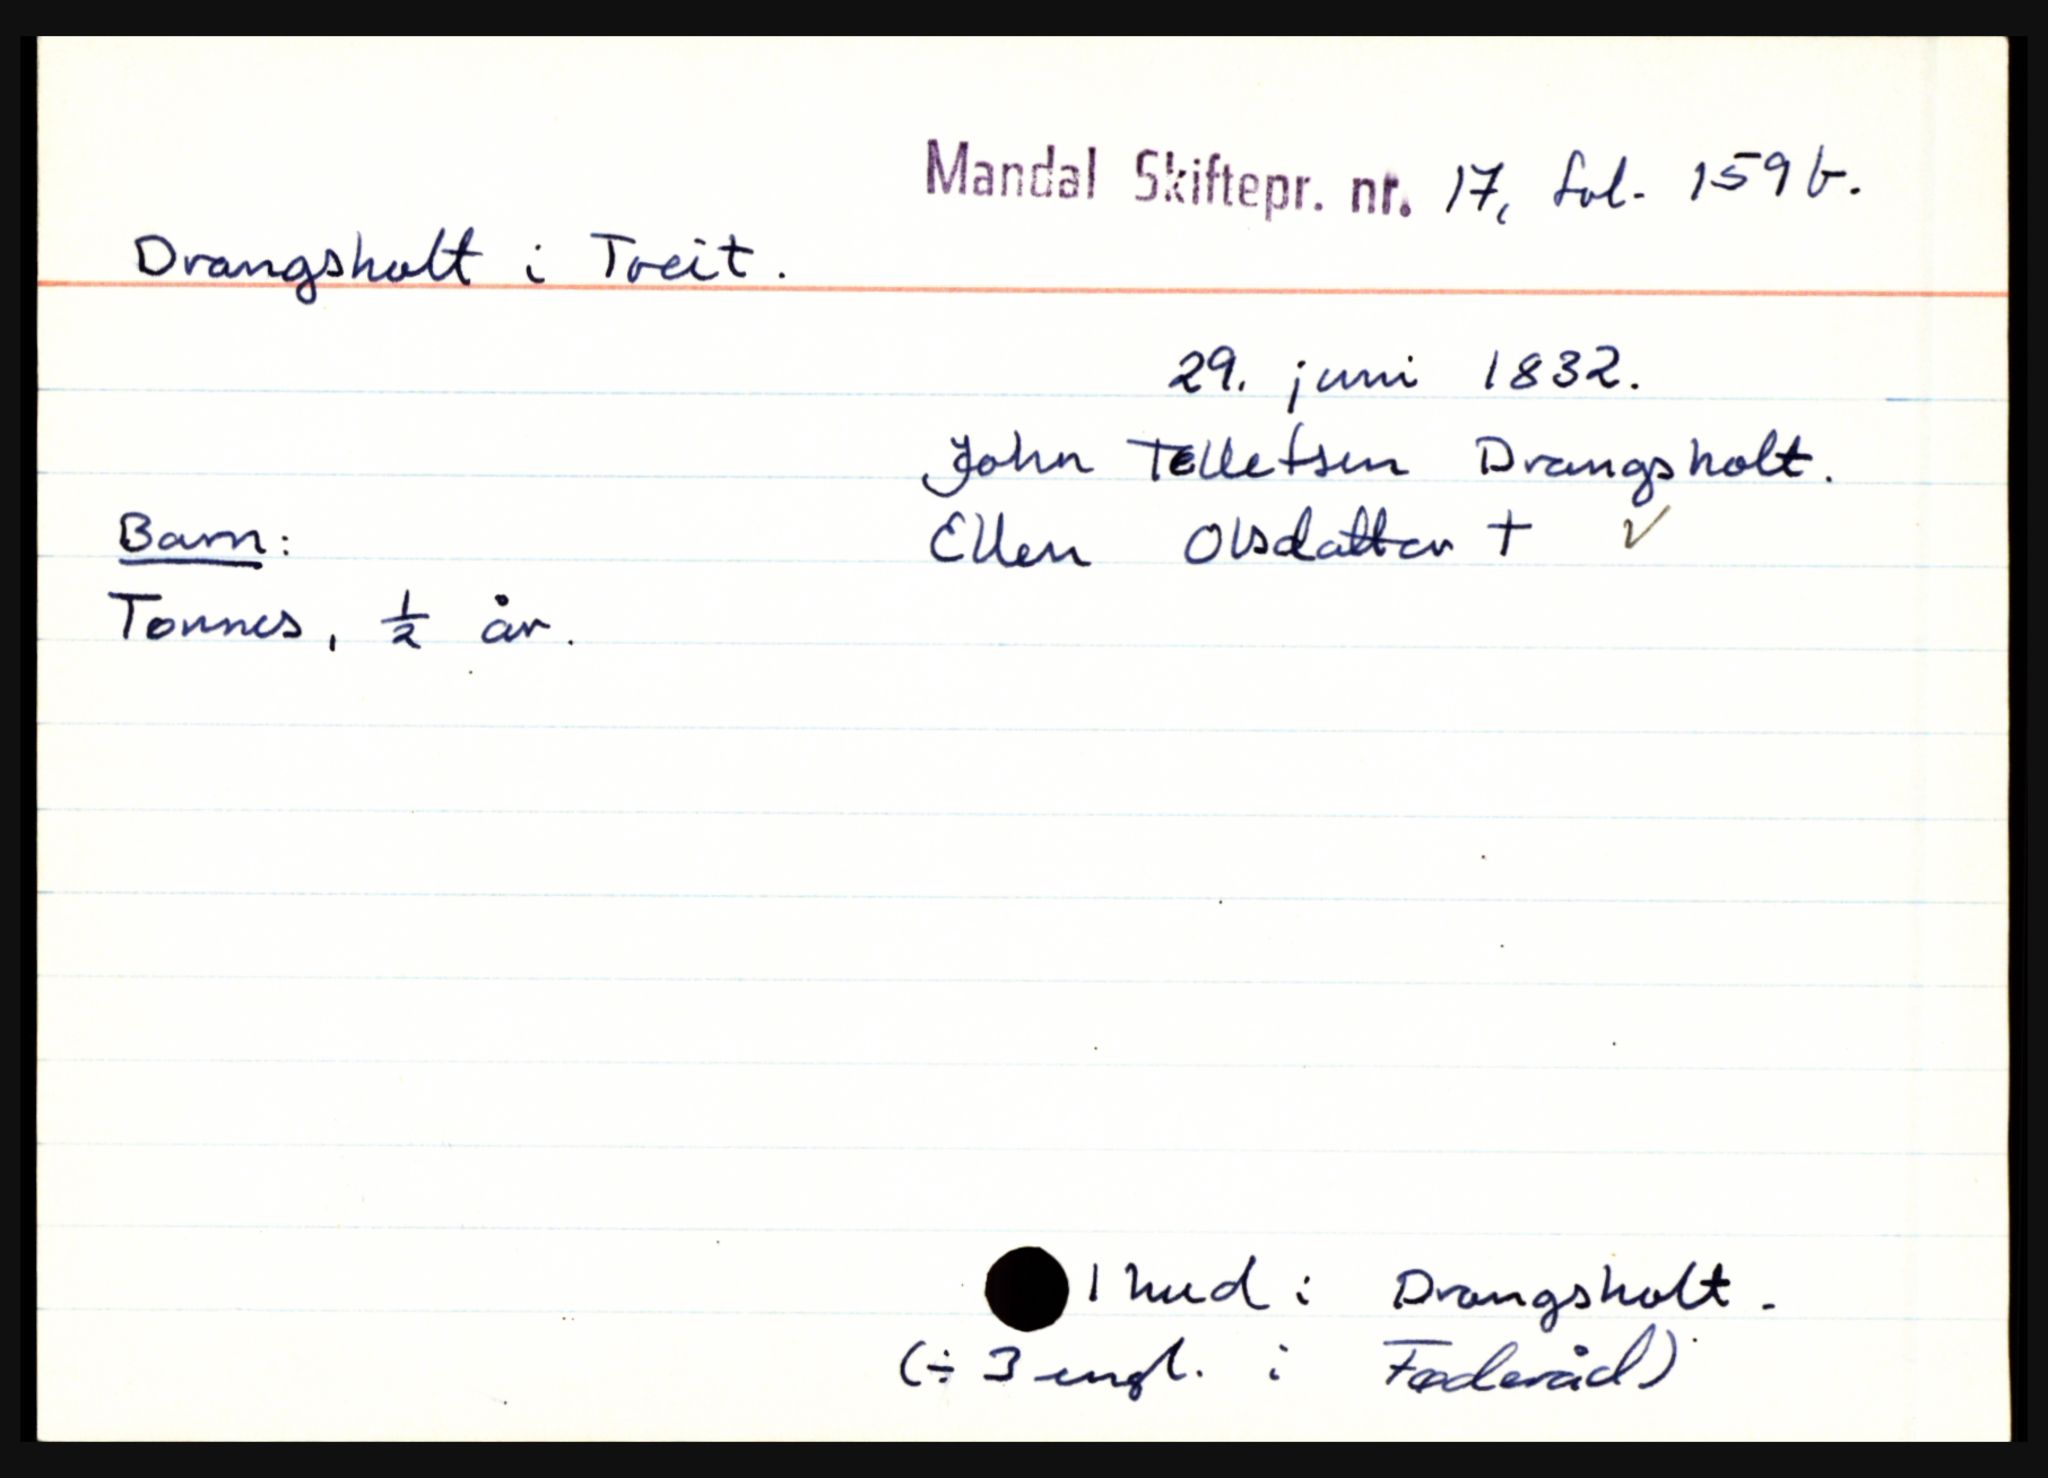 Mandal Skiftepr. nr. 17, fol. 159 b.
Drangsholt i Tveit.
29. juni 1832.
John Tellefsen Drangsholt.
Ellen Olsdatter † ✓
Barn:
Tønnes, ½ år.
1 hud i Drangsholt.
(÷ 3 engl. i Føderåd)